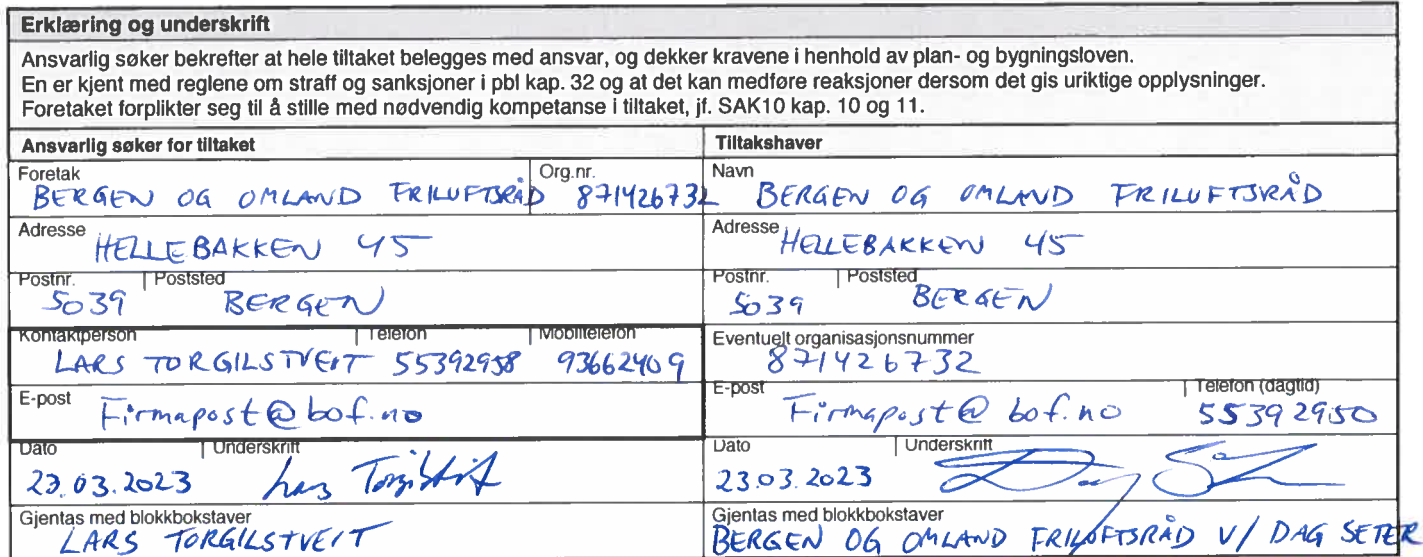 Erklæring og underskrift
Ansvarlig søker bekrefter at hele tiltaket belegges med ansvar, og dekker kravene i henhold av plan- og bygningsloven.
En er kjent med reglene om straff og sanksjoner i pbl kap. 32 og at det kan medføre reaksjoner dersom det gis uriktige opplysninger.
Foretaket forplikter seg til å stille med nødvendig kompetanse i tiltaket, jf. SAK10 kap. 10 og 11.
Ansvarlig søker for tiltaket
Foretak Org.nr.
BERGEN OG OMLAND FRILUFTSRÅD 871426732
Adresse
HELLEBAKKEN 45
Postnr. Poststed
5039 BERGEN
Kontaktperson Telefon Mobiltelefon
LARS TORGILSTVEIT 55392958 93662409
E-post
Firmapost@bof.no
Dato Underskrift
23.03.2023 Lars Torgilstveit
Gjentas med blokkbokstaver
LARS TORGILSTVEIT
Tiltakshaver
Navn
BERGEN OG OMLAND FRILUFTSRÅD
Adresse
HELLEBAKKEN 45
Postnr. Poststed
5039 BERGEN
Eventuelt organisasjonsnummer
871426732
E-post Telefon (dagtid)
Firmapost@bof.no 55392950
Dato Underskrift
23.03.2023
Gjentas med blokkbokstaver
BERGEN OG OMLAND FRILUFTSRÅD V/ DAG SETER